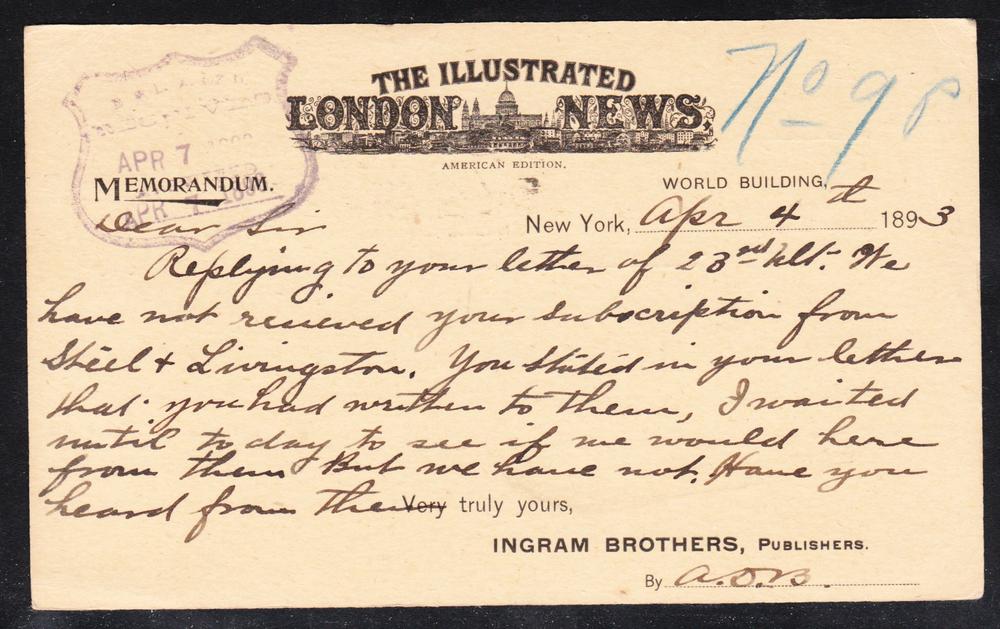 THE ILLUSTRATED
LONDON NEWS,
AMERICAN EDITION.
No 98
RECEIVED
APR 7
APR 7
MEMORANDUM.
WORLD BUILDING,
New York, Apr 4th 1893
Dear Sir
Replying to your letter of 23rd Ult. We
have not recieved your subscription from
Steel & Livingston. You stated in your letter
that you had written to them, I waited
until to day to see if we would here
from them But we have not. Have you
heard from the
Very truly yours,
INGRAM BROTHERS, PUBLISHERS.
By A.D.B.